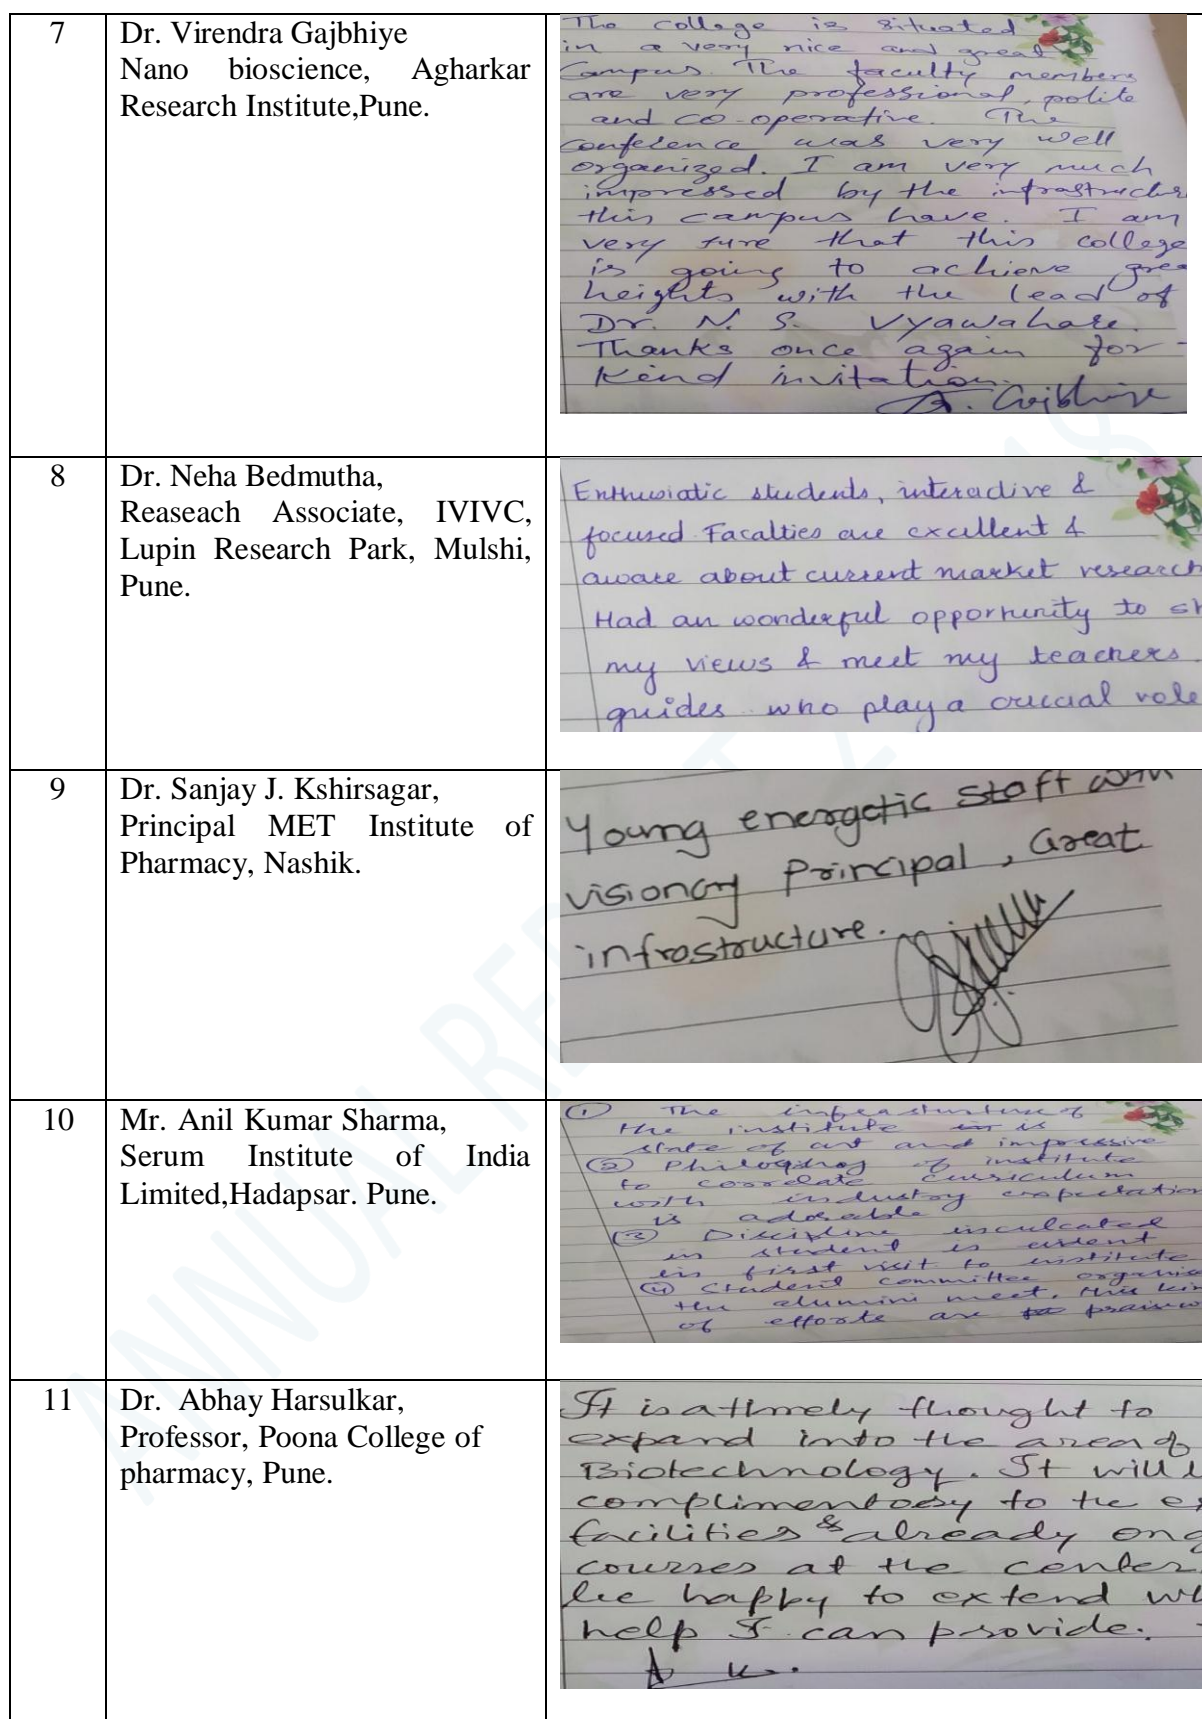 7
Dr. Virendra Gajbhiye
Nano bioscience, Agharkar
Research Institute,Pune.
The college is situated
in a very nice and great
Campus. The faculty members
are very professional, polite
and co-operative. The
conference was very well
organized. I am very much
impressed by the infrastructur
this campus have. I am
very sure that this college
is going to achieve grea
heights with the lead of
Dr. N. S. Vyawahare.
Thanks once again for
Kind invitation.
8
Dr. Neha Bedmutha,
Reaseach Associate, IVIVC,
Lupin Research Park, Mulshi,
Pune.
Enthusiatic students, interactive &
focused. Facalties are excellent &
aware about current market research
Had an wonderful opportunity to sh
my views & meet my teachers.
guides who play a crucial role
9
Dr. Sanjay J. Kshirsagar,
Principal MET Institute of
Pharmacy, Nashik.
Young energetic staff with
visionary Principal, Great
infrastructure.
10
Mr. Anil Kumar Sharma,
Serum Institute of India
Limited,Hadapsar. Pune.
① The infrastructure of
the institute is
state of art and impressive
② Philosophy of institute
to correlate curriculum
with industry expectation
is adorable
③ Discipline inculcated
in student is evident
in first visit to institute
④ Student committee organis
the alumini meet, this kin
of efforts are praisew
11
Dr. Abhay Harsulkar,
Professor, Poona College of
pharmacy, Pune.
It is a timely thought to
expand into the area of
Biotechnology. It will b
complimentary to the ex
facilities & already ong
courses at the center.
be happy to extend wh
help I can provide.
ANNUAL REPORT 2 18